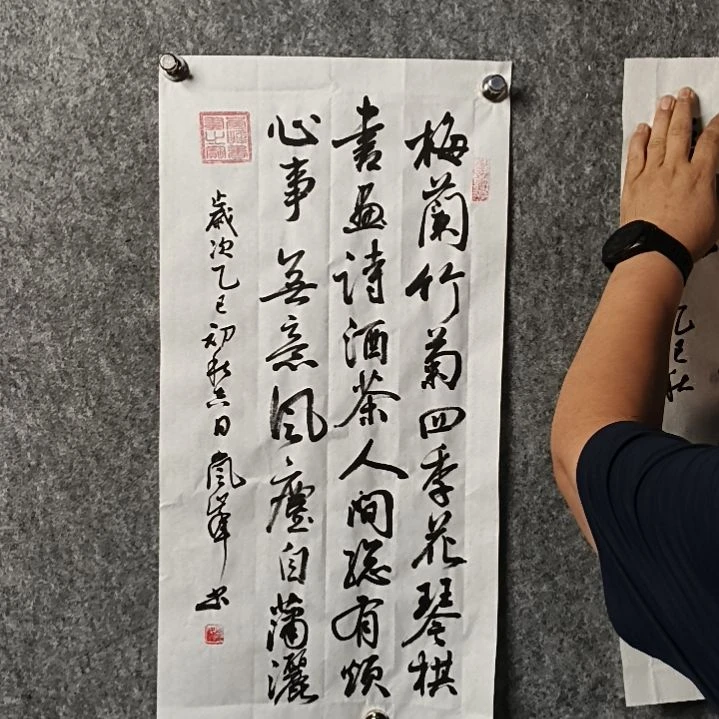 梅蘭竹菊四季花琴棋
書畫詩酒茶人间總有煩
心事無意风塵自瀟灑
歲次乙巳初秋六日嵐峰书
乙巳秋